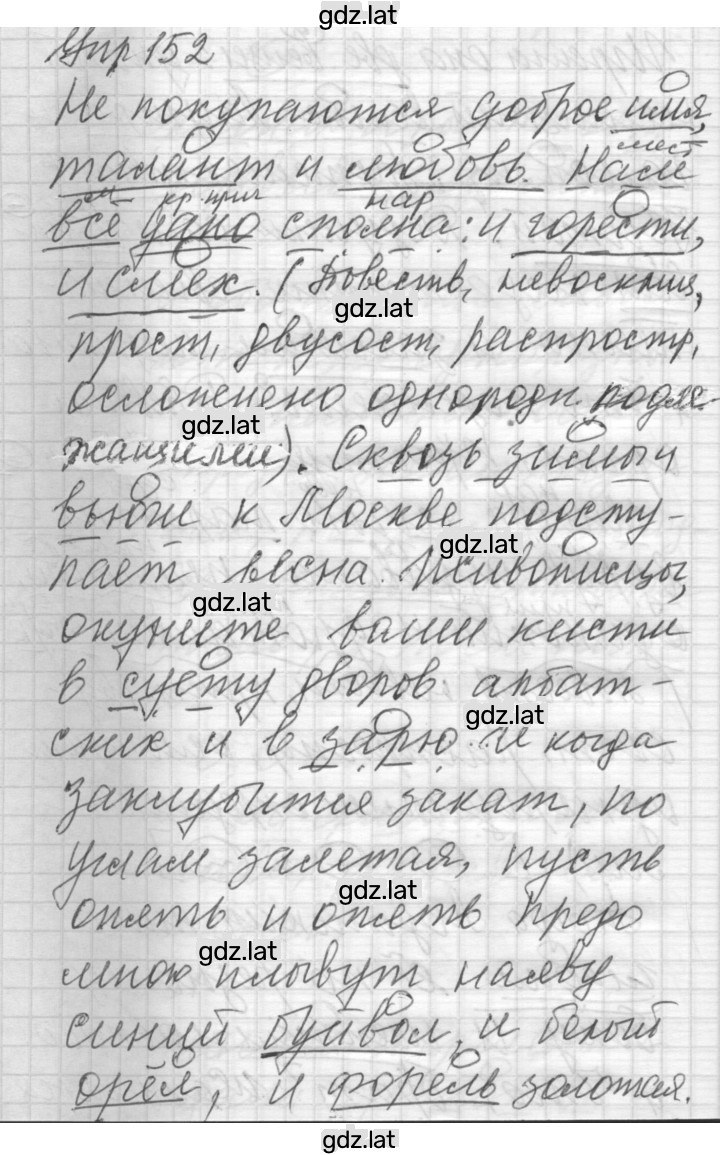 gdz.lat
Упр 152
Не покупаются доброе имя,
талант и любовь. Нам
мест
всё дано сполна: и горести,
м кр. прич нар
и смех. (Повеств, невосклиц,
gdz.lat
прост, двусост, распростр,
осложенено однородн. подле-
gdz.lat
жащими). Сквозь зимы и
вьюги к Москве подсту-
gdz.lat
пает весна. Живописцы,
gdz.lat
окуните ваши кисти
в суету дворов арбат-
gdz.lat
ских и в зарю. И когда
заклубится закат, по
углам залетая, пусть
gdz.lat
опять и опять предо
gdz.lat
мною плывут наяву
синий буйвол, и белый
орёл, и форель золотая.
gdz.lat